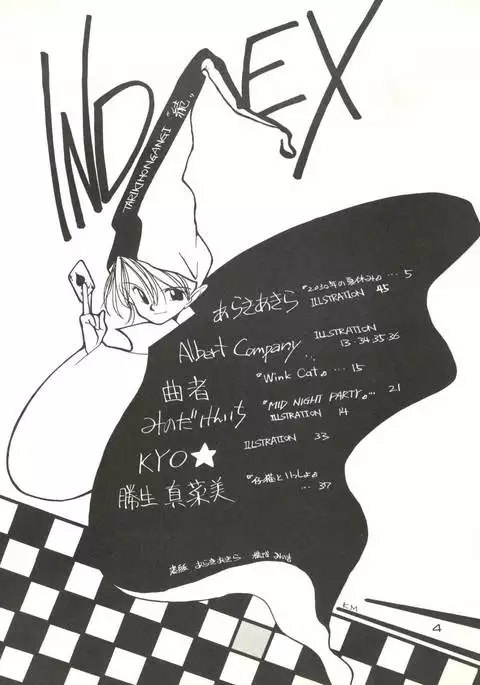 INDEX
TARIKIHONGANGI "続"
あらきあきら 『2030年の夏休み』 … 5
ILLUSTRATION 45
Albert Company ILLUSTRATION
13・34・35・36
曲者 『Wink Cat』 … 15
みのだけんいち 『MID NIGHT PARTY』 … 21
ILLUSTRATION 14
KYO★ ILLUSTRATION 33
勝生 真菜美 『仔猫といっしょ』
… 37
表紙 あらきあきら
KM
4